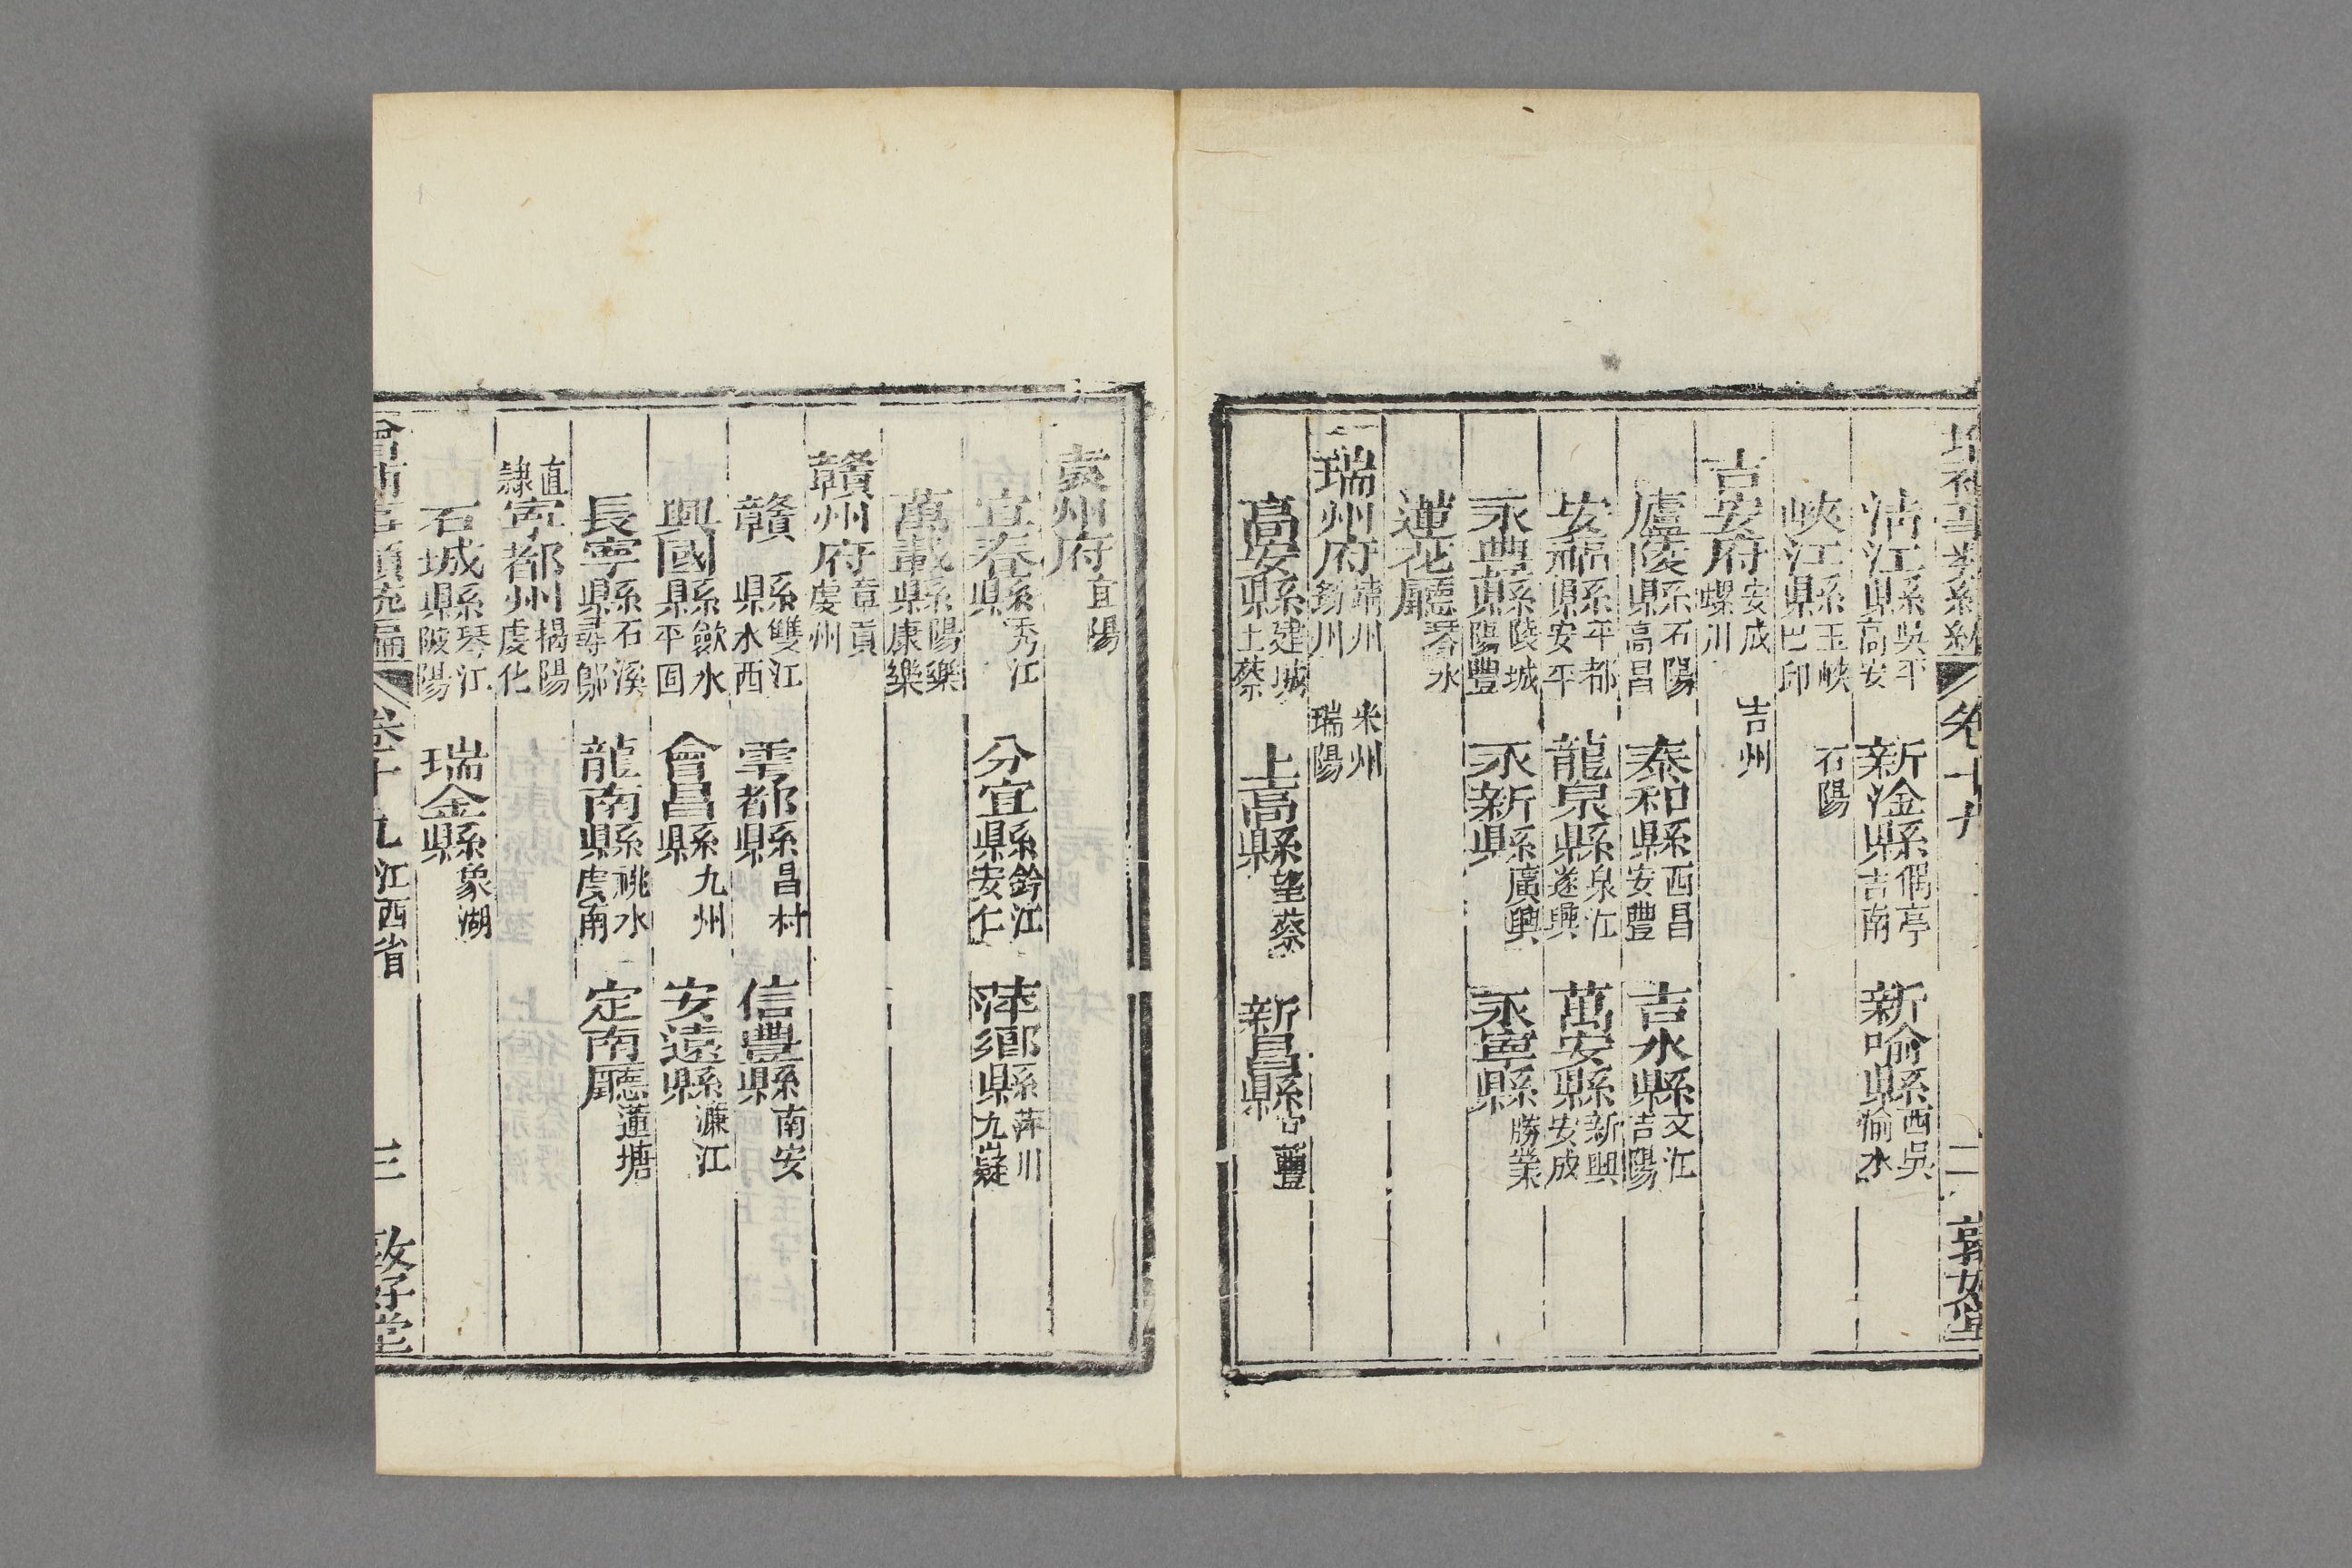 卷十九 二 敦好堂
清江縣 吳平 高安 新淦縣 偶亭 吉南 新喻縣 西吳 渝水
峽江縣 玉峽 巴邱 石陽
吉安府 安成 螺川 吉州
廬陵縣 石陽 高昌 泰和縣 西昌 安豐 吉水縣 文江 吉陽
安福縣 平都 安平 龍泉縣 泉江 遂興 萬安縣 新興 安成
永豐縣 陵城 陽豐 永新縣 廣興 永寧縣 勝業
蓮花廳 琴水
瑞州府 靖州 筠川 米州 瑞陽
高安縣 建城 上蔡 上高縣 望蔡 新昌縣 宜豐
袁州府 宜陽
宜春縣 秀江 分宜縣 鈐江 安仁 萍鄉縣 萍川 九嶷
萬載縣 陽樂 康樂
贛州府 章貢 虔州
贛縣 雙江 水西 雩都縣 昌村 信豐縣 南安
興國縣 歛水 平固 會昌縣 九州 安遠縣 濂江
長寧縣 石溪 尋鄔 龍南縣 桃水 虔南 定南廳 蓮塘
直隸寧都州 揭陽 虔化
石城縣 琴江 陂陽 瑞金縣 象湖
卷十九 江西省 三 敦好堂